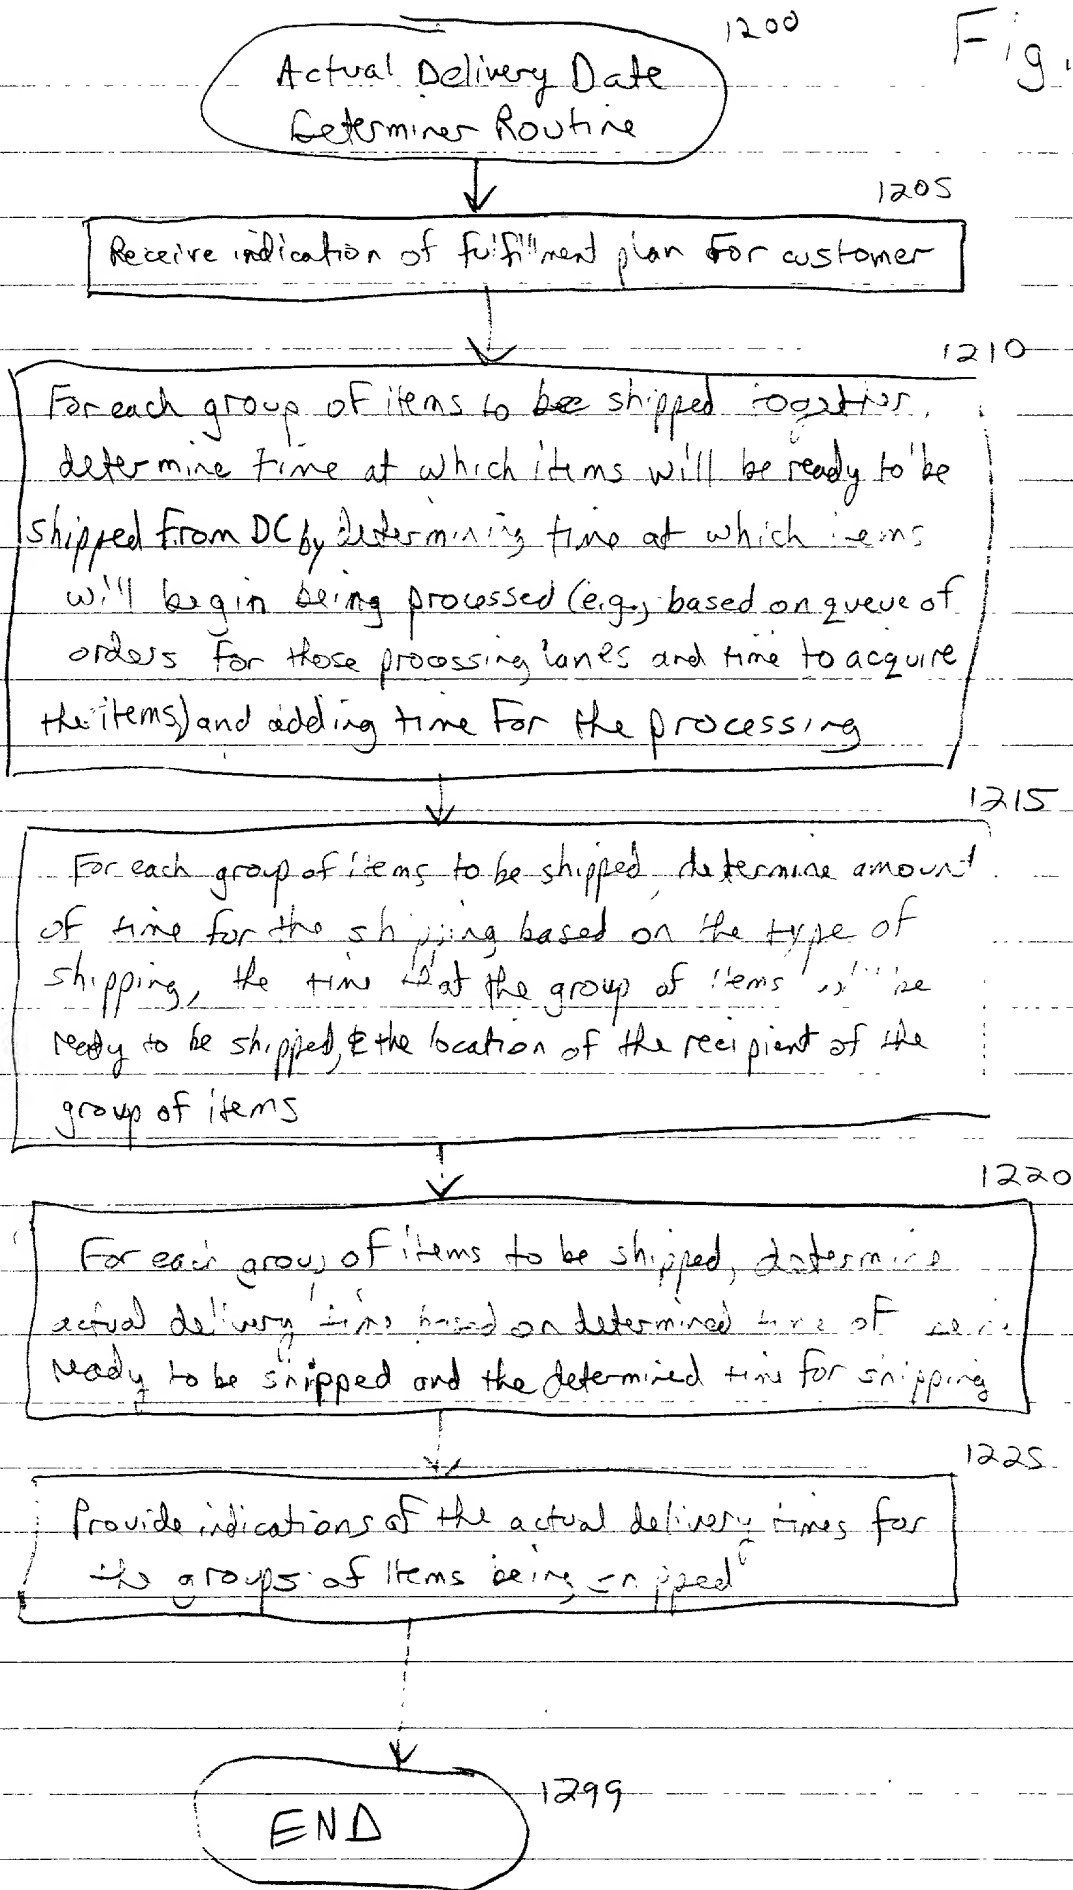 1200
Fig.
Actual Delivery Date
Determiner Routine
1205
Receive indication of fulfillment plan for customer
1210
For each group of items to be shipped together,
determine time at which items will be ready to be
shipped from DC by determining time at which items
will begin being processed (e.g., based on queue of
orders for those processing lanes and time to acquire
the items) and adding time for the processing
1215
For each group of items to be shipped, determine amount
of time for the shipping based on the type of
shipping, the time that the group of items will be
ready to be shipped, & the location of the recipient of the
group of items
1220
For each group of items to be shipped, determine
actual delivery time based on determined time of
ready to be shipped and the determined time for shipping
1225
Provide indications of the actual delivery times for
the groups of items being shipped
1299
END